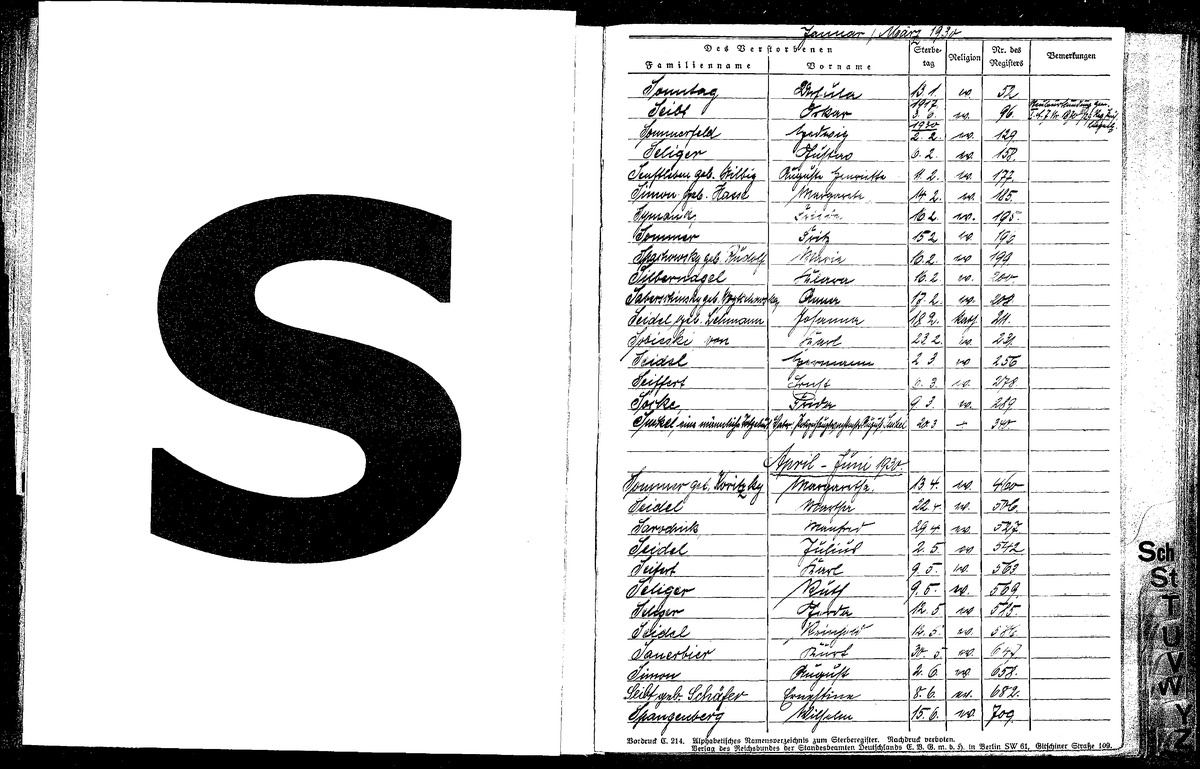 S
Januar / März 1930
Des Verstorbenen Sterbe- tag Religion Nr. des Registers Bemerkungen
Familienname Vorname
Sonntag Ursula 13 1. ev. 52
Seibt Oskar 1917 3. 6. ev. 96
Sommerfeld Hedwig 1930 2. 2. ev. 129
Seliger Gustav 6. 2. ev.
Senftleben geb. Wilbig Auguste Henriette 11 2. ev. 172
Simon geb. Hanke Margarete 14 2. ev. 185
Frieda 16 2. ev. 195.
Sommer Fritz 15 2 ev.
geb. Rudolf Marie 16 2. ev. 199
Silbernagel Klara 16. 2. ev.
Anna 17. 2. ev. 208.
Seidel geb. Lehmann Johanna 18 2. kath. 211.
Sobieski von Karl 22 2. ev.
Seidel Hermann 2 3 ev 256
Seiffert Ernst 6. 3. ev. 278
Sorke Frida 9 3. ev. 289
eine männliche Totgeburt 20 3 –
April – Juni 1930
Sommer geb. Moritzky Margarethe. 13 4. ev. 460
Seidel Martha 22 4 ev.
Manfred 29 4 ev. 527
Seidel Julius 2. 5. ev 542
Seifert Karl 9 5. ev. 563
Seliger Ruth 9. 5. ev. 569
Gerda 12. 5 ev
Seidel Reinhold ev.
Sauerbier Kurt 5 ev.
Simon August 2. 6. ev. 657.
Seibt geb. Schäfer Ernestine 8. 6. ev. 682.
Spangenberg Wilhelm 15. 6. ev. 709
Vordruck C. 214. Alphabetisches Namensverzeichnis zum Sterberegister. Nachdruck verboten.
Verlag des Reichsbundes der Standesbeamten Deutschlands E. V. G. m. b. H. in Berlin SW 61, Gitschiner Straße 109.
Sch
St
T
U
V
W
Y
Z